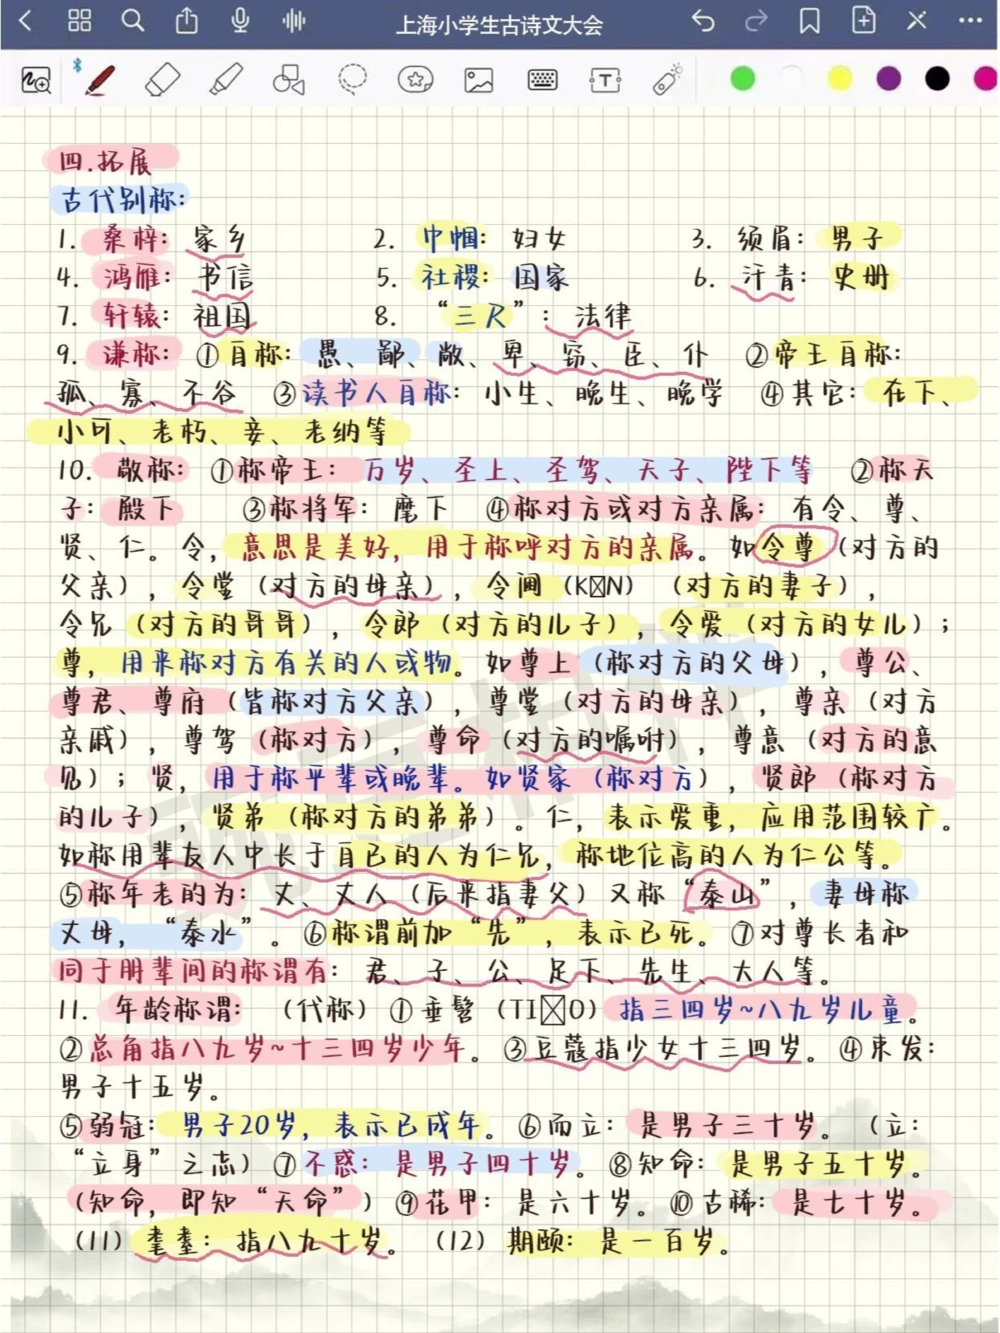 上海小学生古诗文大会
四.拓展
古代别称：
1. 桑梓：家乡 2. 巾帼：妇女 3. 须眉：男子
4. 鸿雁：书信 5. 社稷：国家 6. 汗青：史册
7. 轩辕：祖国 8. “三尺”：法律
9. 谦称：①自称：愚、鄙、敝、卑、窃、臣、仆 ②帝王自称：
孤、寡、不谷 ③读书人自称：小生、晚生、晚学 ④其它：在下、
小可、老朽、妾、老纳等
10. 敬称：①称帝王：万岁、圣上、圣驾、天子、陛下等 ②称天
子：殿下 ③称将军：麾下 ④称对方或对方亲属：有令、尊、
贤、仁。令，意思是美好，用于称呼对方的亲属。如令尊（对方的
父亲），令堂（对方的母亲），令阃（K☒N）（对方的妻子），
令兄（对方的哥哥），令郎（对方的儿子），令爱（对方的女儿）；
尊，用来称对方有关的人或物。如尊上（称对方的父母），尊公、
尊君、尊府（皆称对方父亲），尊堂（对方的母亲），尊亲（对方
亲戚），尊驾（称对方），尊命（对方的嘱咐），尊意（对方的意
见）；贤，用于称平辈或晚辈。如贤家（称对方），贤郎（称对方
的儿子），贤弟（称对方的弟弟）。仁，表示爱重，应用范围较广。
如称用辈友人中长于自己的人为仁兄，称地位高的人为仁公等。
⑤称年老的为：丈、丈人（后来指妻父）又称“泰山”，妻母称
丈母，“泰水”。⑥称谓前加“先”，表示已死。⑦对尊长者和
同于朋辈间的称谓有：君、子、公、足下、先生、大人等。
11. 年龄称谓：（代称）①垂髫（TI☒O）指三四岁~八九岁儿童。
②总角指八九岁~十三四岁少年。③豆蔻指少女十三四岁。④束发：
男子十五岁。
⑤弱冠：男子20岁，表示已成年。⑥而立：是男子三十岁。（立：
“立身”之志）⑦不惑：是男子四十岁。⑧知命：是男子五十岁。
（知命，即知“天命”）⑨花甲：是六十岁。⑩古稀：是七十岁。
（11）耄耋：指八九十岁。（12）期颐：是一百岁。